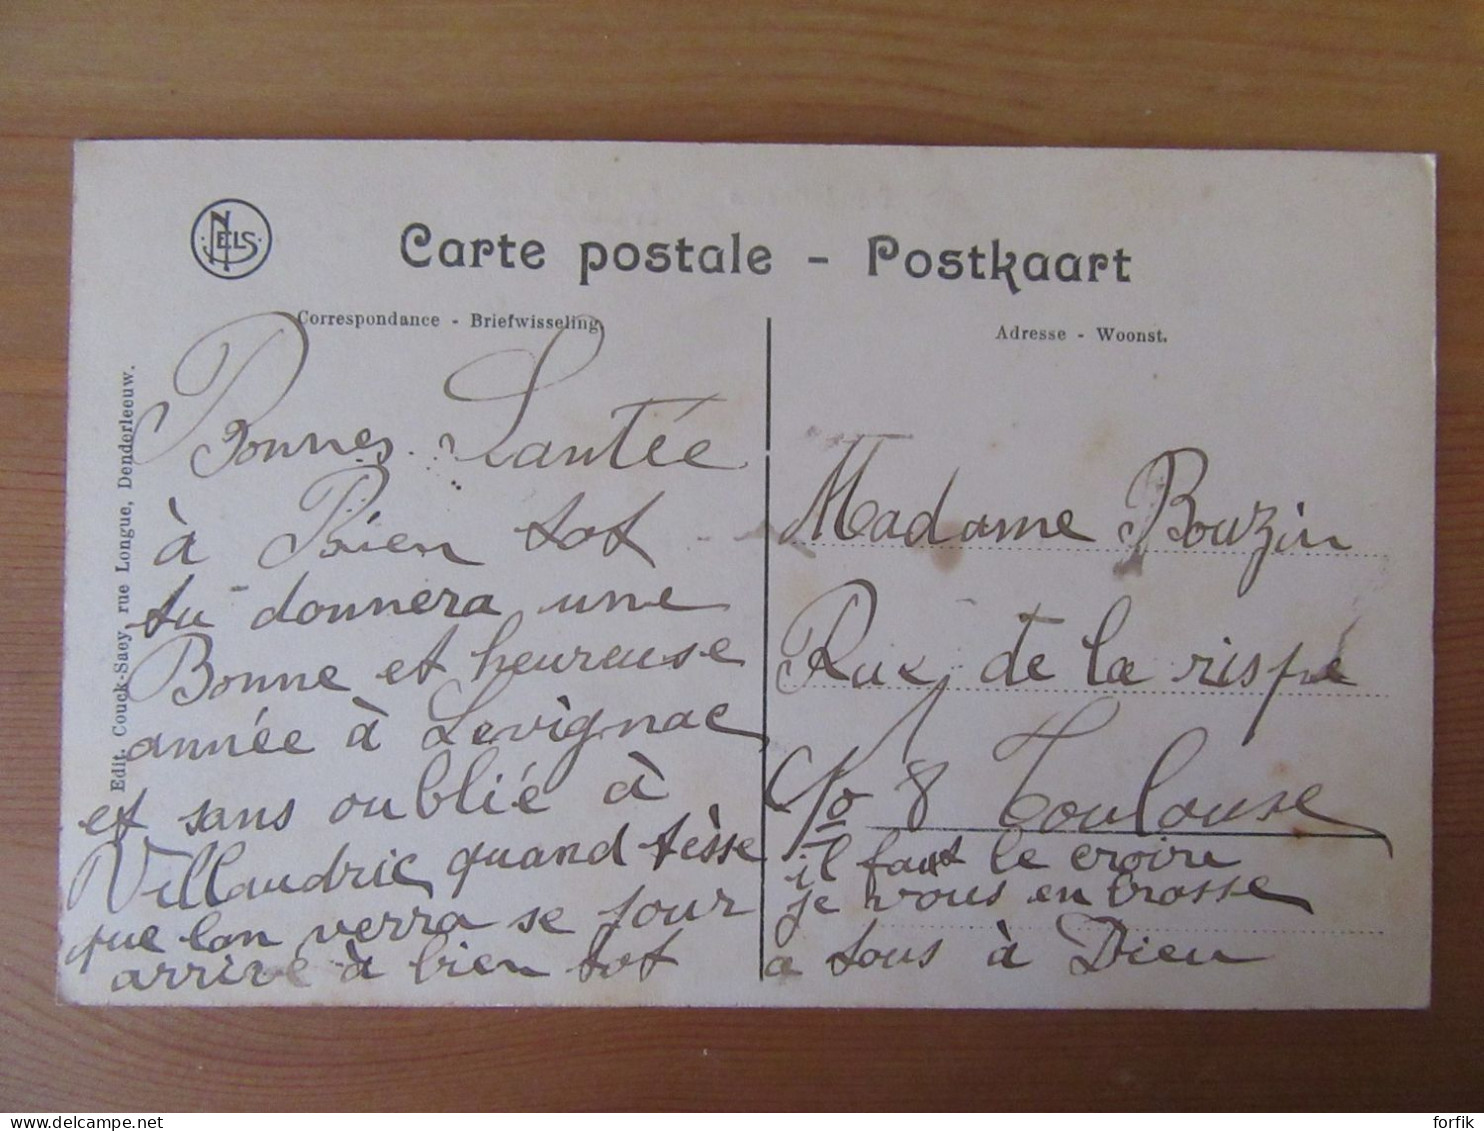 NELS
Carte postale - Postkaart
Correspondance - Briefwisseling
Adresse - Woonst.
Edit. Couck-Saey rue Longue, Denderleeuw.
Bonnes Santée
à Bien tot
tu donnera une
Bonne et heureuse
année à Levignac
et sans oublié à
Villaudric quand tèsse
que lon verra se jour
arrive à bien tot
Madame Bouzin
Rue de la rispe
No 8 Toulouse
il faut le croire
je vous en brasse
a tous à Dieu
forfik